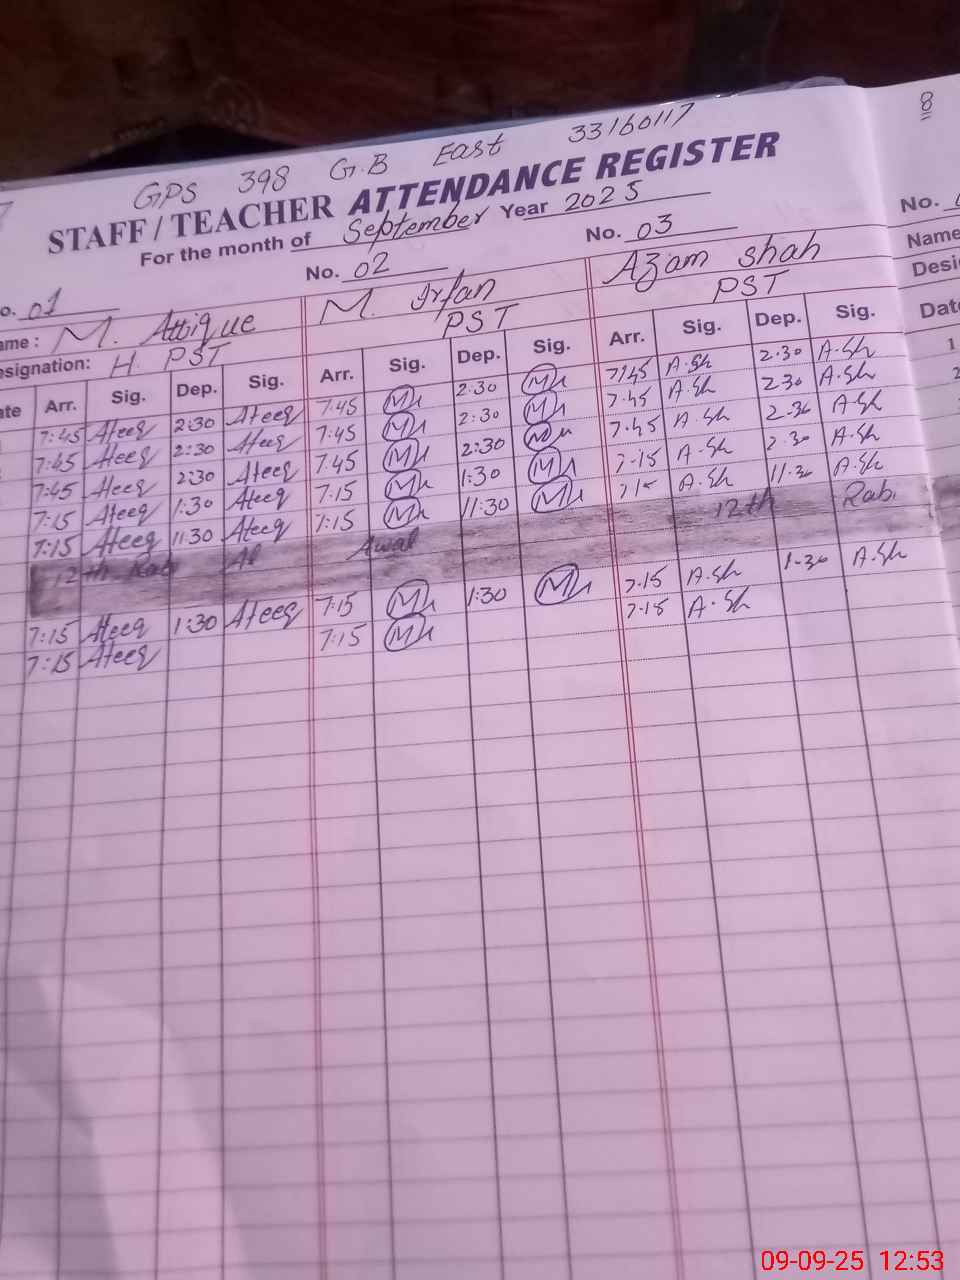 8
GPS 398 G.B East 33160117
STAFF / TEACHER ATTENDANCE REGISTER
For the month of September Year 2025
No. 01 No. 02 No. 03 No.
ame : M. Attique M. Irfan Azam Shah Name
esignation: H. PST PST PST Desi
ate Arr. Sig. Dep. Sig. Arr. Sig. Dep. Sig. Arr. Sig. Dep. Sig. Date
7:45 Ateeq 2:30 Ateeq 7:45 2:30 7:45 A.Sh 2.30 A.Sh 1
7:45 Ateeq 2:30 Ateeq 7:45 2:30 7.45 A.Sh 2.30 A.Sh 2
7:45 Ateeq 2:30 Ateeq 7:45 2:30 7.45 A.Sh 2.30 A.Sh
7:15 Ateeq 1:30 Ateeq 7:15 1:30 7.15 A.Sh 2.30 A.Sh
7:15 Ateeq 11:30 Ateeq 7:15 11:30 715 A.Sh 11.30 A.Sh
12th Rab Al Awal 12th Rabi
7:15 Ateeq 1:30 Ateeq 7:15 1:30 7.15 A.Sh 1.30 A.Sh
7:15 Ateeq 7:15 7.15 A.Sh
09-09-25 12:53